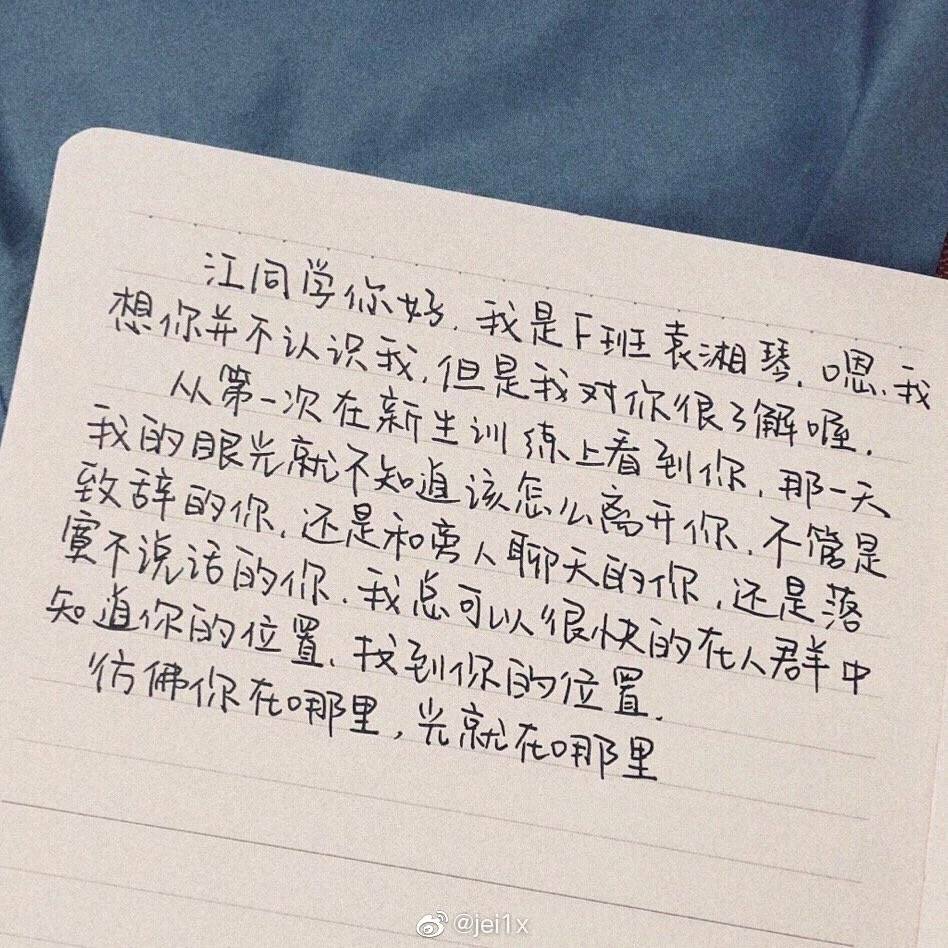 江同学你好. 我是F班袁湘琴. 嗯. 我
想你并不认识我. 但是我对你很了解喔.
从第一次在新生训练上看到你. 那一天
我的眼光就不知道该怎么离开你. 不管是
致辞的你. 还是和旁人聊天的你. 还是落
寞不说话的你. 我总可以很快的在人群中
知道你的位置. 找到你的位置.
仿佛你在哪里, 光就在哪里
@jei1x